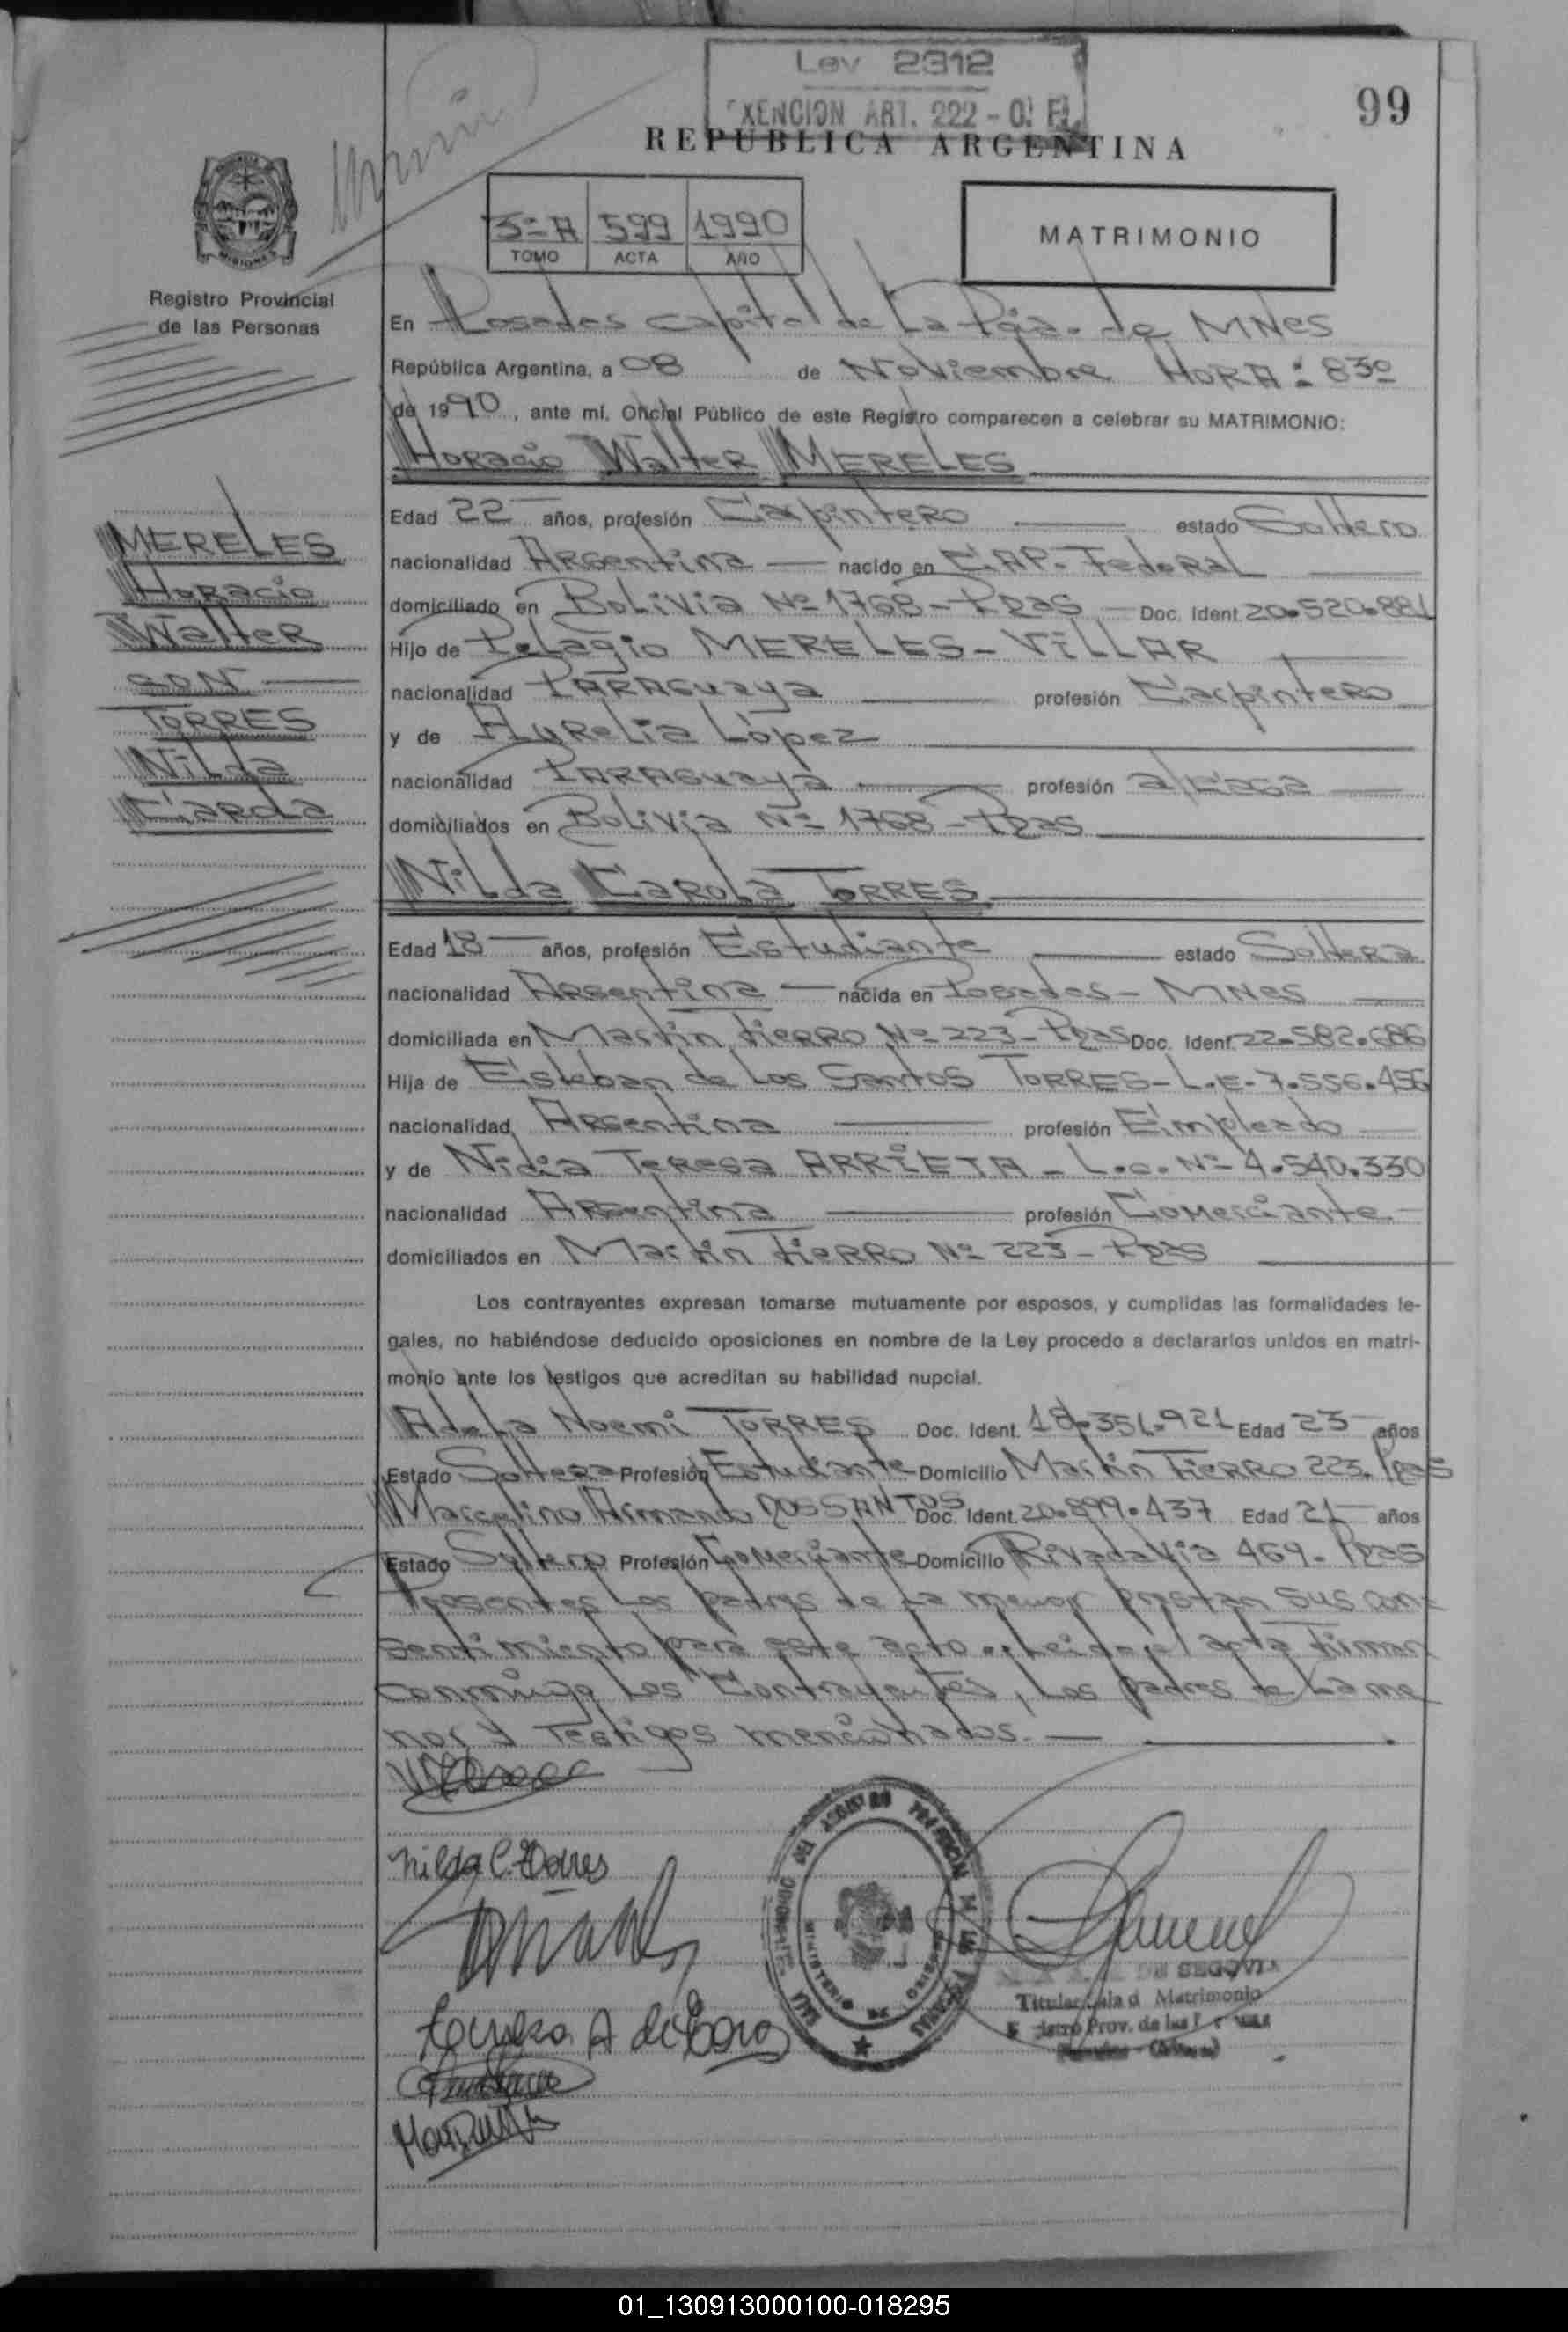 Ley 2312
EXENCION ART. 222 - O. F.
99
REPUBLICA ARGENTINA
3º A 599 1990
TOMO ACTA AÑO
MATRIMONIO
MISIONES
Registro Provincial
de las Personas
En Posadas capital de la Pcia. de MNes
República Argentina, a 08 de Noviembre HORA: 8 30
de 1990, ante mí, Oficial Público de este Registro comparecen a celebrar su MATRIMONIO:
Horacio Walter MERELES
Edad 22 años, profesión Carpintero estado Soltero
nacionalidad Argentina nacido en CAP. Federal
domiciliado en Bolivia Nº 1768 - Pdas Doc. Ident. 20.520.881
Hijo de Pelagio MERELES - VILLAR
nacionalidad PARAGuaya profesión Carpintero
y de Aurelia López
nacionalidad PARAGuaya profesión a/casa
domiciliados en Bolivia Nº 1768 - Pdas
Nilda Carola TORRES
Edad 18 años, profesión Estudiante estado Soltera
nacionalidad Argentina nacida en Posadas - MNes
domiciliada en Martin Fierro Nº 223 - Pdas Doc. Ident. 22.582.686
Hija de Esteban de Los Santos TORRES - L.E. 7.556.456
nacionalidad Argentina profesión Empleado
y de Nidia Teresa ARRIETA - L.C. Nº 4.540.330
nacionalidad Argentina profesión Comerciante
domiciliados en Martin Fierro Nº 223 - Pdas
MERELES
Horacio
Walter
CON
TORRES
Nilda
Carola
Los contrayentes expresan tomarse mutuamente por esposos, y cumplidas las formalidades le-
gales, no habiéndose deducido oposiciones en nombre de la Ley procedo a declararlos unidos en matri-
monio ante los testigos que acreditan su habilidad nupcial.
Adela Noemi TORRES Doc. Ident. 18.351.921 Edad 23 años
Estado Soltera Profesión Estudiante Domicilio Martin Fierro 223. Pdas
Marcelino Armando DOSSANTOS Doc. Ident. 20.899.437 Edad 21 años
Estado Soltero Profesión Comerciante Domicilio Rivadavia 469 - Pdas
Presentes Los padres de La menor prestan sus con-
sentimiento para este acto.. Leida el acta firman
conmigo Los Contrayentes, Los padres de La me
nor y Testigos mencionados.
Nilda C. Torres
DE SEGOVIA
Titular Sala d Matrimonio
Prov. de las
01_130913000100-018295